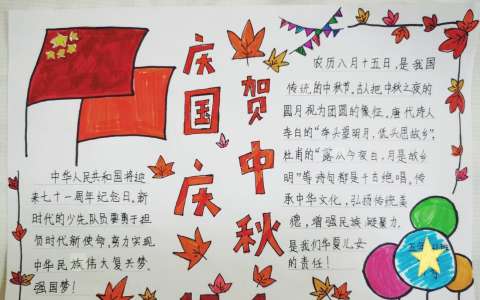 庆国庆
贺中秋
农历八月十五日,是我国
传统的中秋节。古人把中秋之夜的
圆月视为团圆的像征。唐代诗人
李白的"举头望明月,低头思故乡",
杜甫的"露从今夜白,月是故乡
明"等诗句都是千古绝唱。传
承中华文化,弘扬传统美
德,增强民族凝聚力,
是我们华夏儿女
的责任!
中华人民共和国将迎
来七十一周年纪念日,新
时代的少先队员要勇于担
负时代新使命,努力实现
中华民族伟大复兴梦、
强国梦!